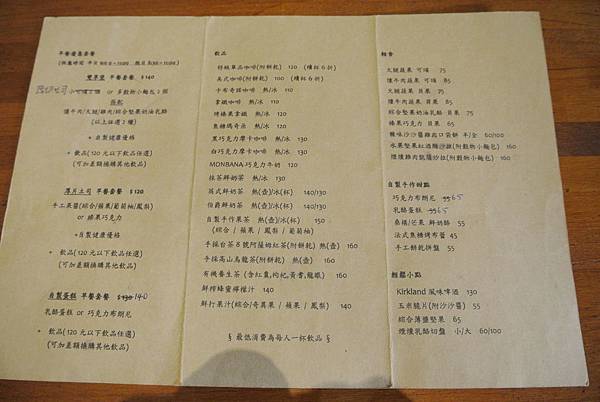 早餐優惠套餐
雙享堡 早餐套餐 $140
小可頌2個 或 多穀物小麵包2個
搭配
燻牛肉/火腿/雞肉/綜合堅果奶油乳酪
(以上任選2種)
+自製健康優格
+ 飲品(120元以下飲品任選)
(可加差額換購其他飲品)
厚片土司 早餐套餐 $120
手工果醬(綜合/蘋果/葡萄柚/鳳梨)
或 榛果巧克力
+自製健康優格
+ 飲品(120元以下飲品任選)
(可加差額換購其他飲品)
自製蛋糕 早餐套餐 $130 140
乳酪蛋糕 or 巧克力布朗尼
+ 飲品(120元以下飲品任選)
(可加差額換購其他飲品)
飲品
特級單品咖啡(附餅乾) 120 (續杯6折)
美式咖啡(附餅乾) 100 (續杯6折)
卡布奇諾咖啡 熱/冰 110
拿鐵咖啡 熱/冰 110
榛橋果拿鐵 熱/冰 120
焦糖瑪奇朵 熱/冰 120
黑巧克力摩卡咖啡 熱/冰 130
白巧克力摩卡咖啡 熱/冰 130
MONBANA巧克力牛奶 130
抹茶鮮奶茶 熱/冰 130
英式鮮奶茶 熱(壺)/冰(杯) 140/130
伯爵鮮奶茶 熱(壺)/冰(杯) 140/130
自製手作果茶 熱(壺)/冰(杯) 150
(綜合 / 蘋果 / 鳳梨 / 葡萄柚)
手採台茶8號阿薩姆紅茶(附餅乾) 熱(壺) 160
手採高山烏龍茶(附餅乾) 熱(壺) 160
有機養生茶 (含紅棗,枸杞,黃耆,龍眼) 160
鮮榨蜂蜜檸檬汁 140
鮮打果汁(綜合/奇異果 / 蘋果 / 鳳梨) 140
§ 最低消費為每人一杯飲品 §
輕食
火腿蔬果 可頌 75
燻牛肉蔬果 可頌 85
火腿蔬果 貝果 75
燻牛肉蔬果 貝果 85
綜合堅果奶油乳酪 貝果 75
榛果巧克力 貝果 65
辣味沙沙醬雞肉口袋餅 半/全 60/100
水果堅果紅酒醋沙拉(附穀物小麵包) 160
煙燻雞肉凱薩沙拉(附穀物小麵包) 160
自製手作甜點
巧克力布朗尼 65
乳酪蛋糕 65
桑椹/芒果 鮮奶酪 55
法式焦糖烤布蕾 45
手工餅乾拼盤 55
輕鬆小點
Kirkland 風味啤酒 130
玉米脆片(附沙沙醬) 55
綜合薄鹽堅果 65
煙燻乳酪切盤 小/大 60/100